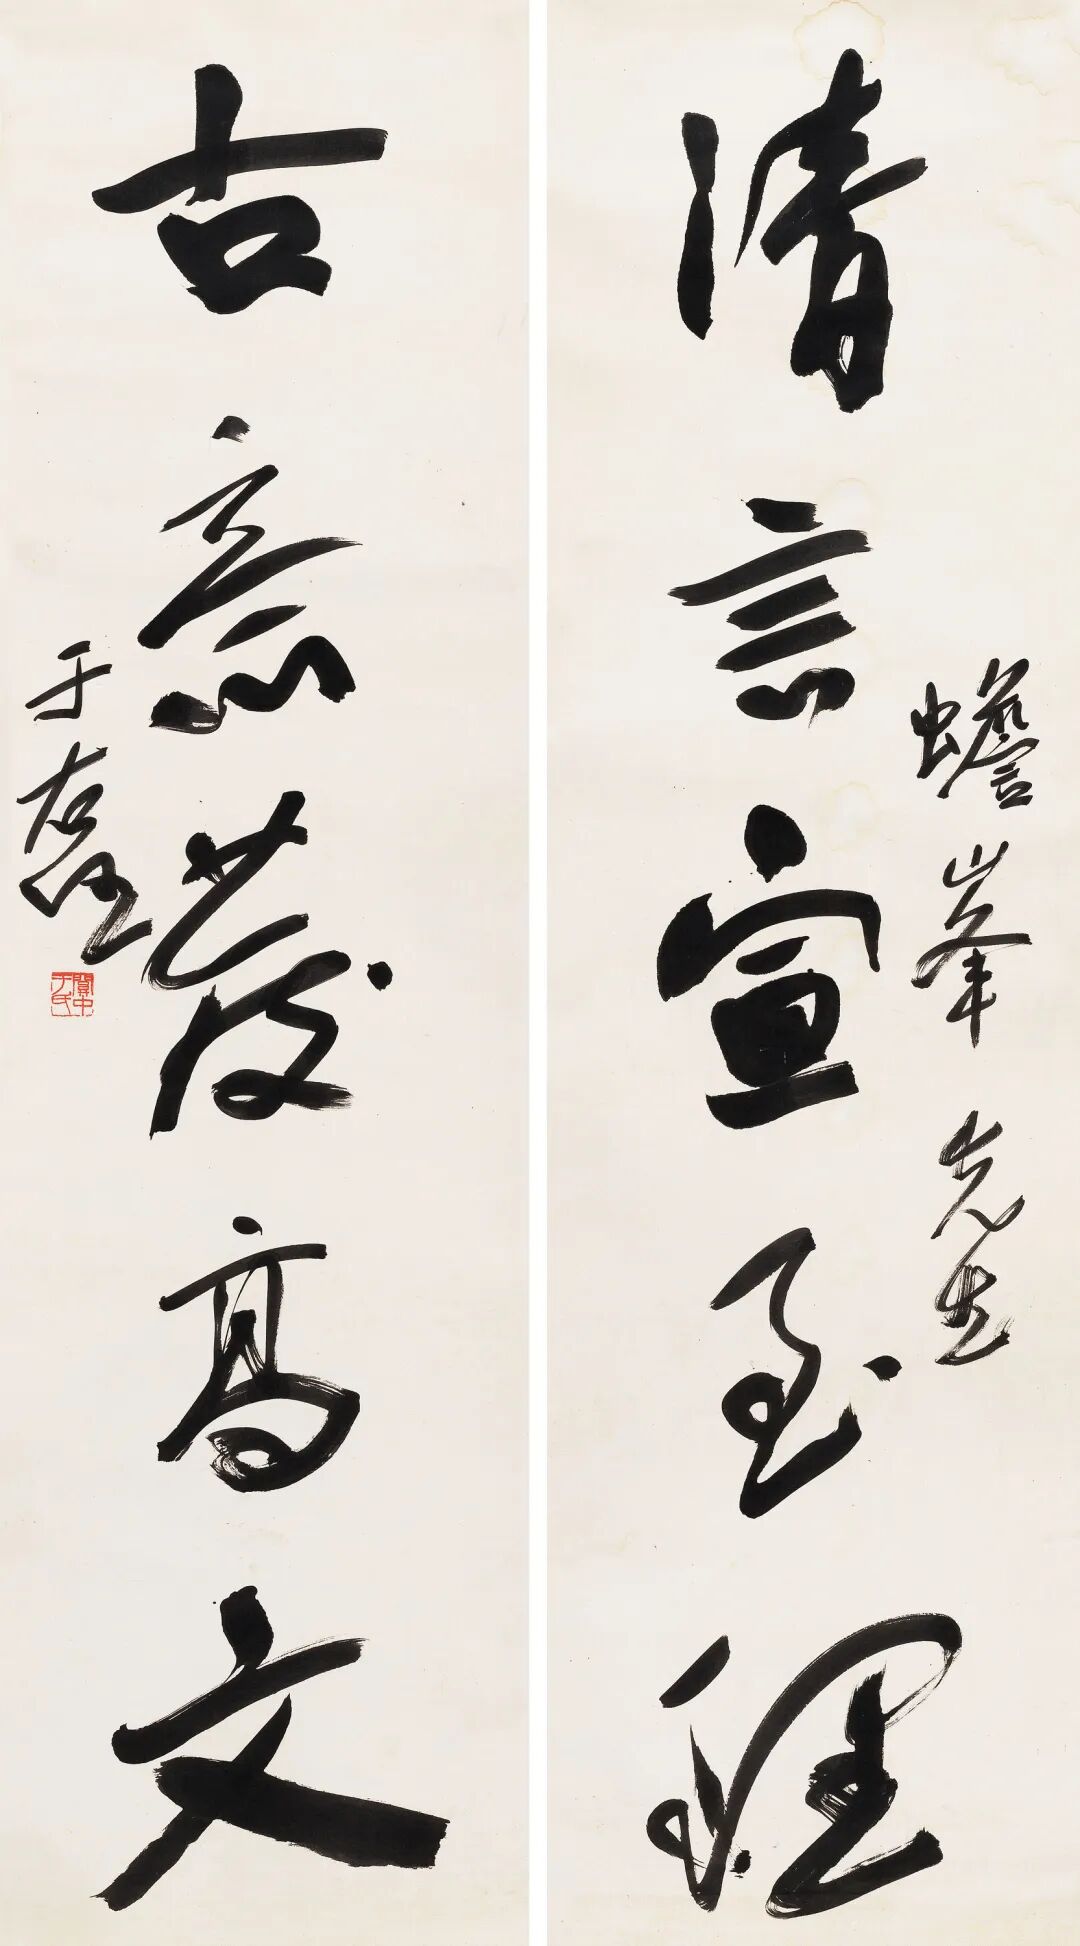 蟾峯先生
清言宣至理
古意發高文
于右任
關中于氏